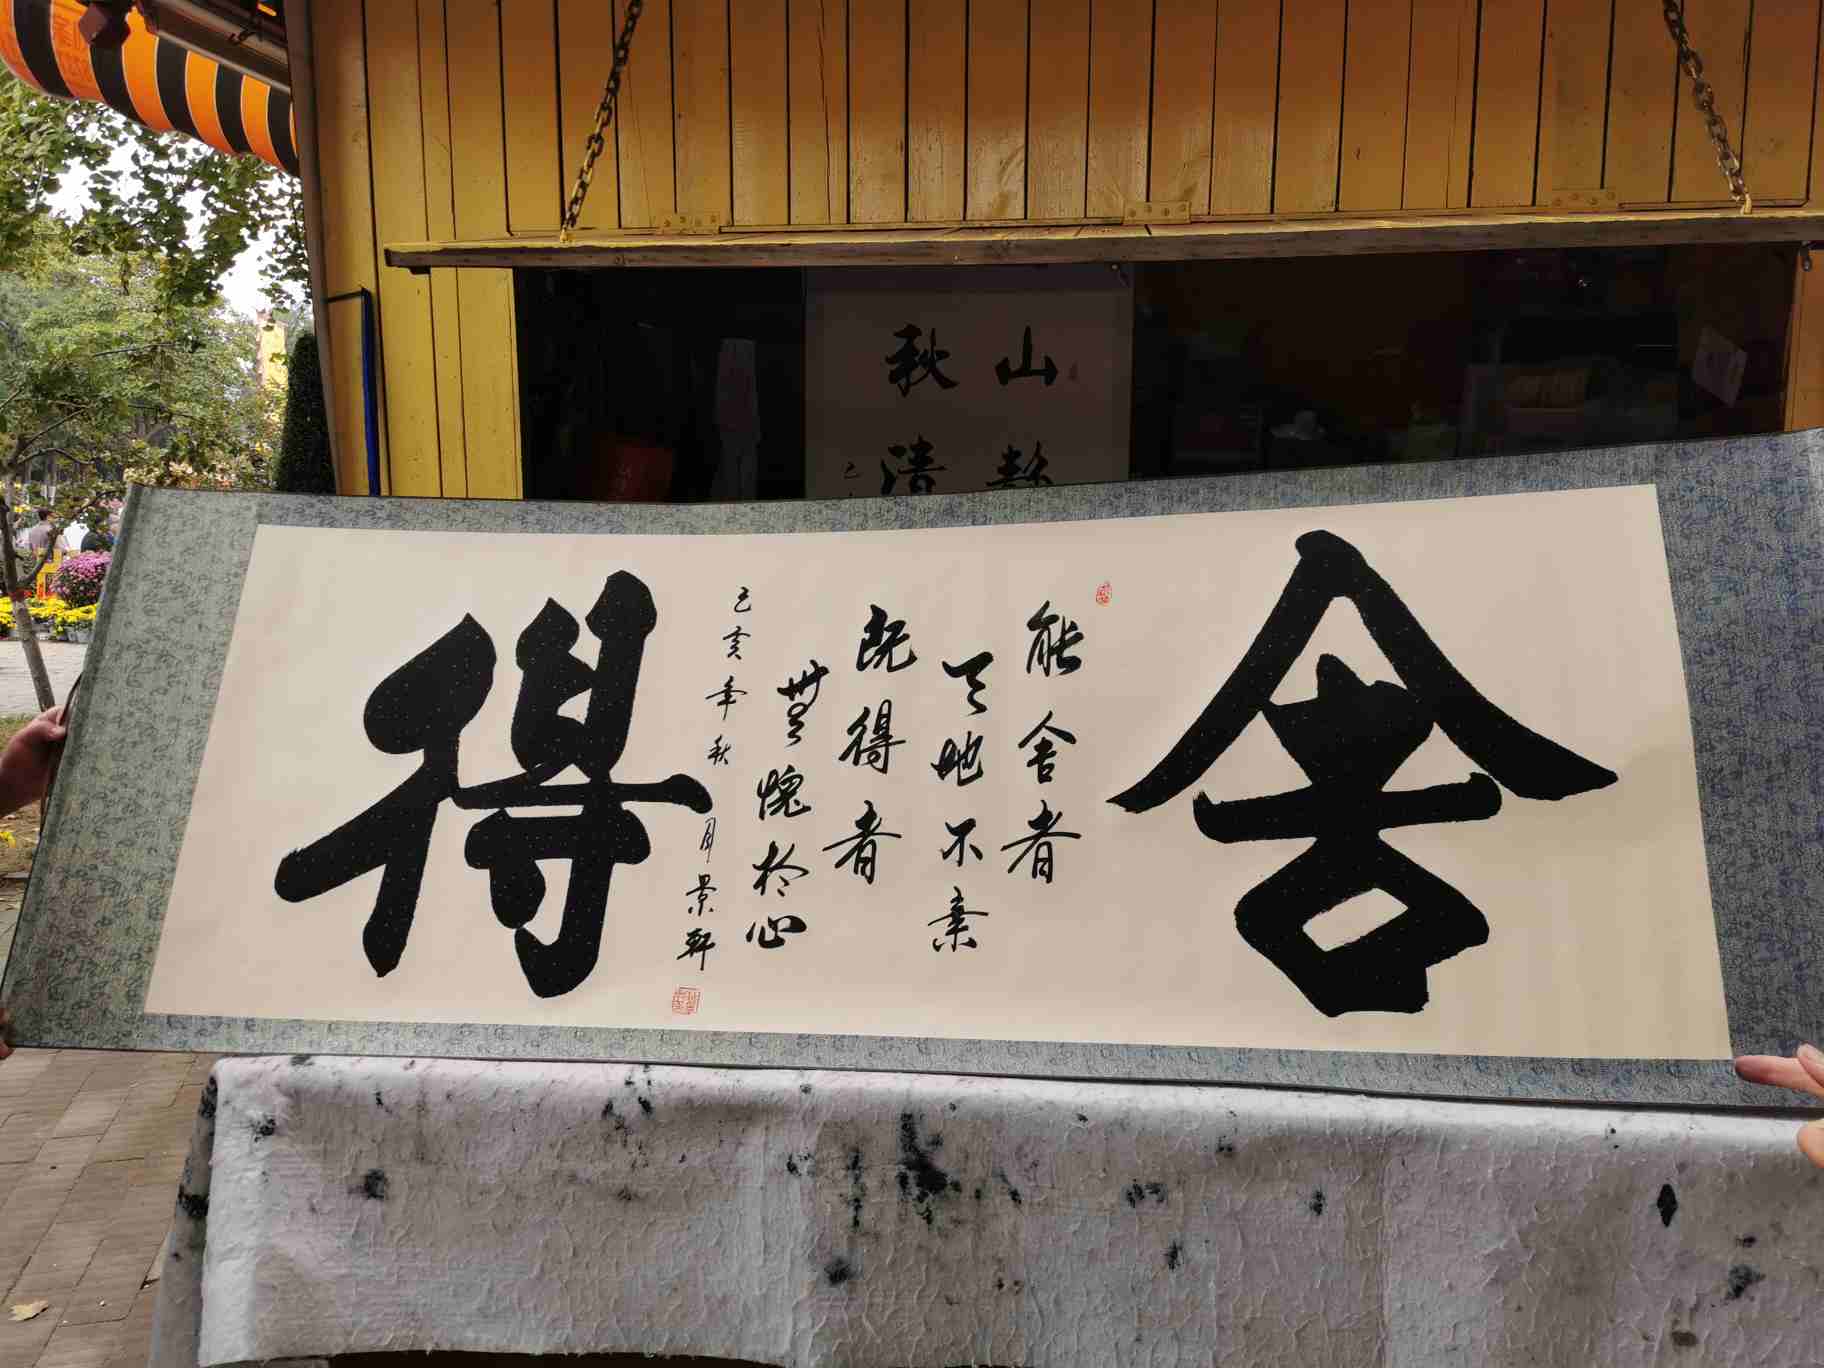 舍
能舍者
天地不棄
既得者
無愧於心
己亥年秋月景軒
得
山
秋清